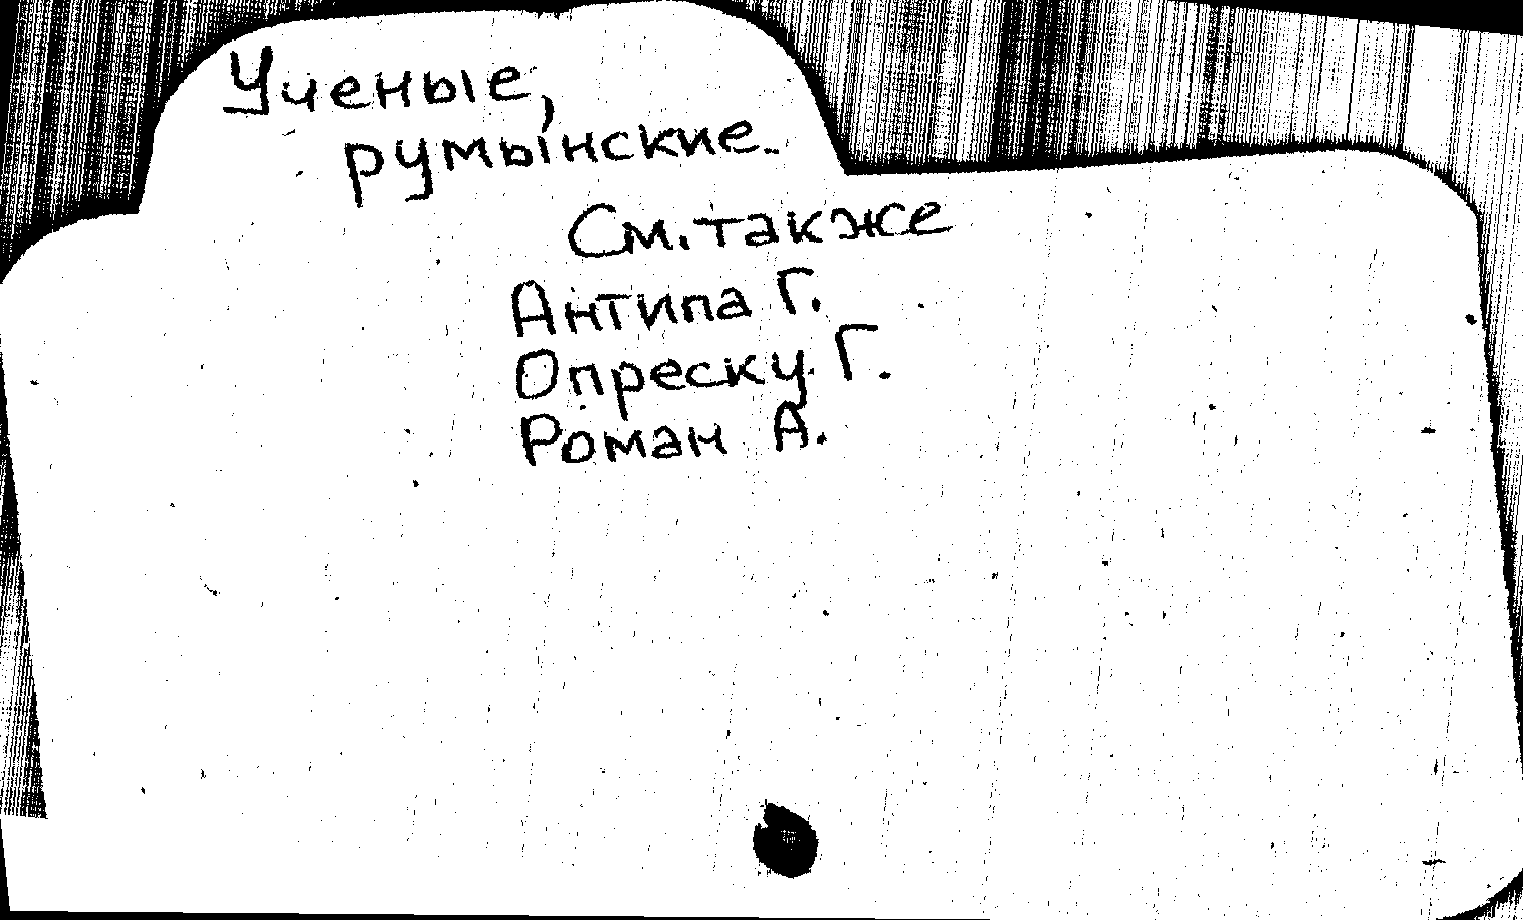 Ученые,
румынские.
См. также
Антипа Г.
Опреску Г.
Роман А.